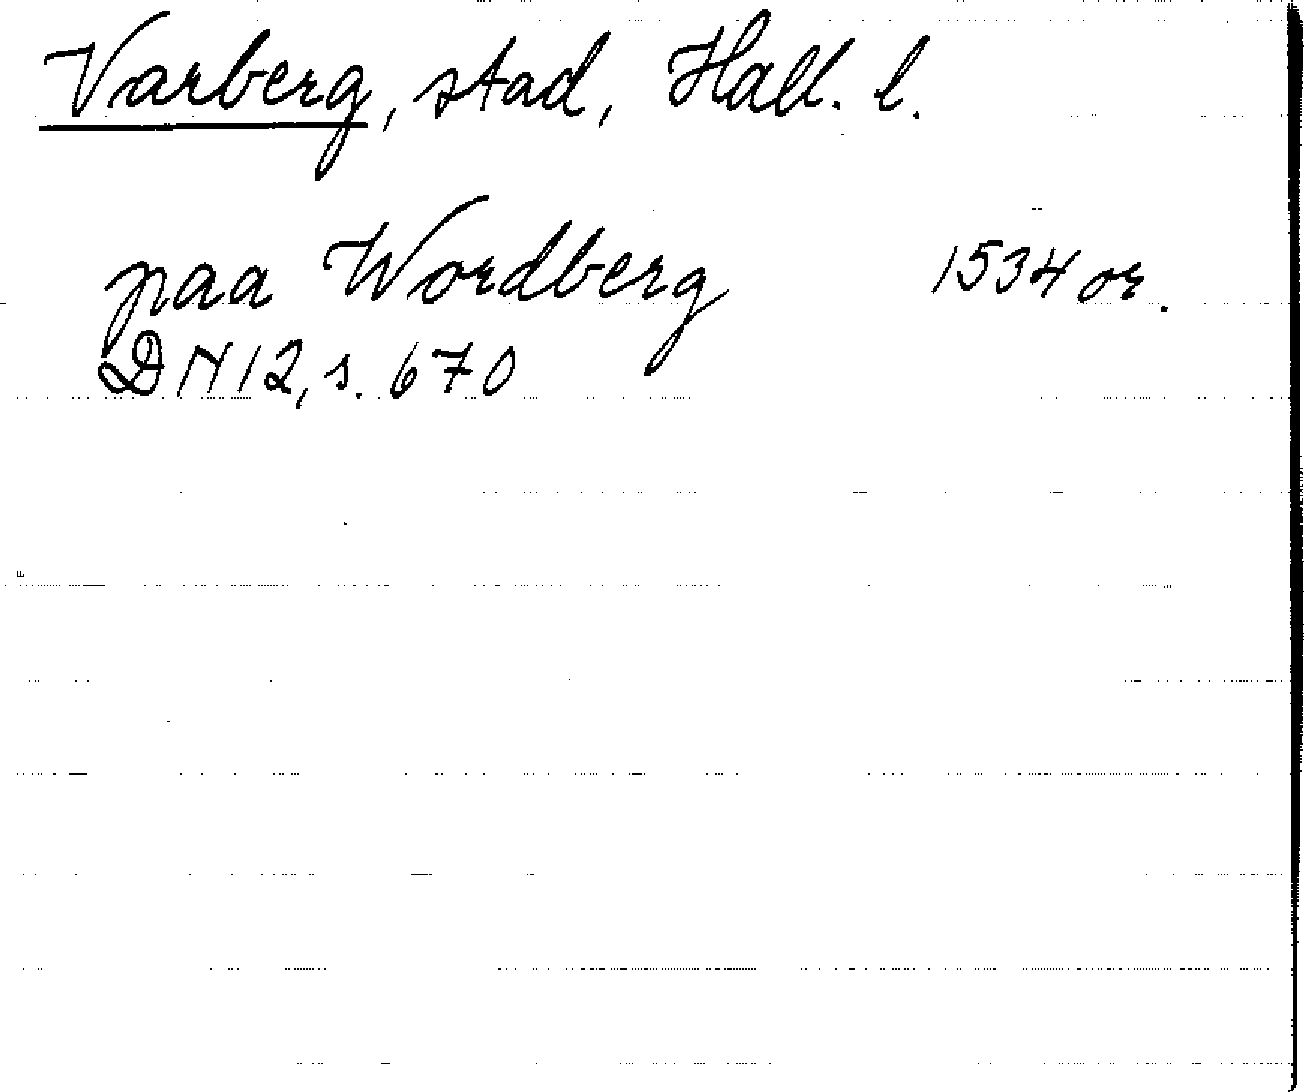 Varberg, stad, Hall. l.
paa Wordberg 1534 or.
DN 12, s. 670